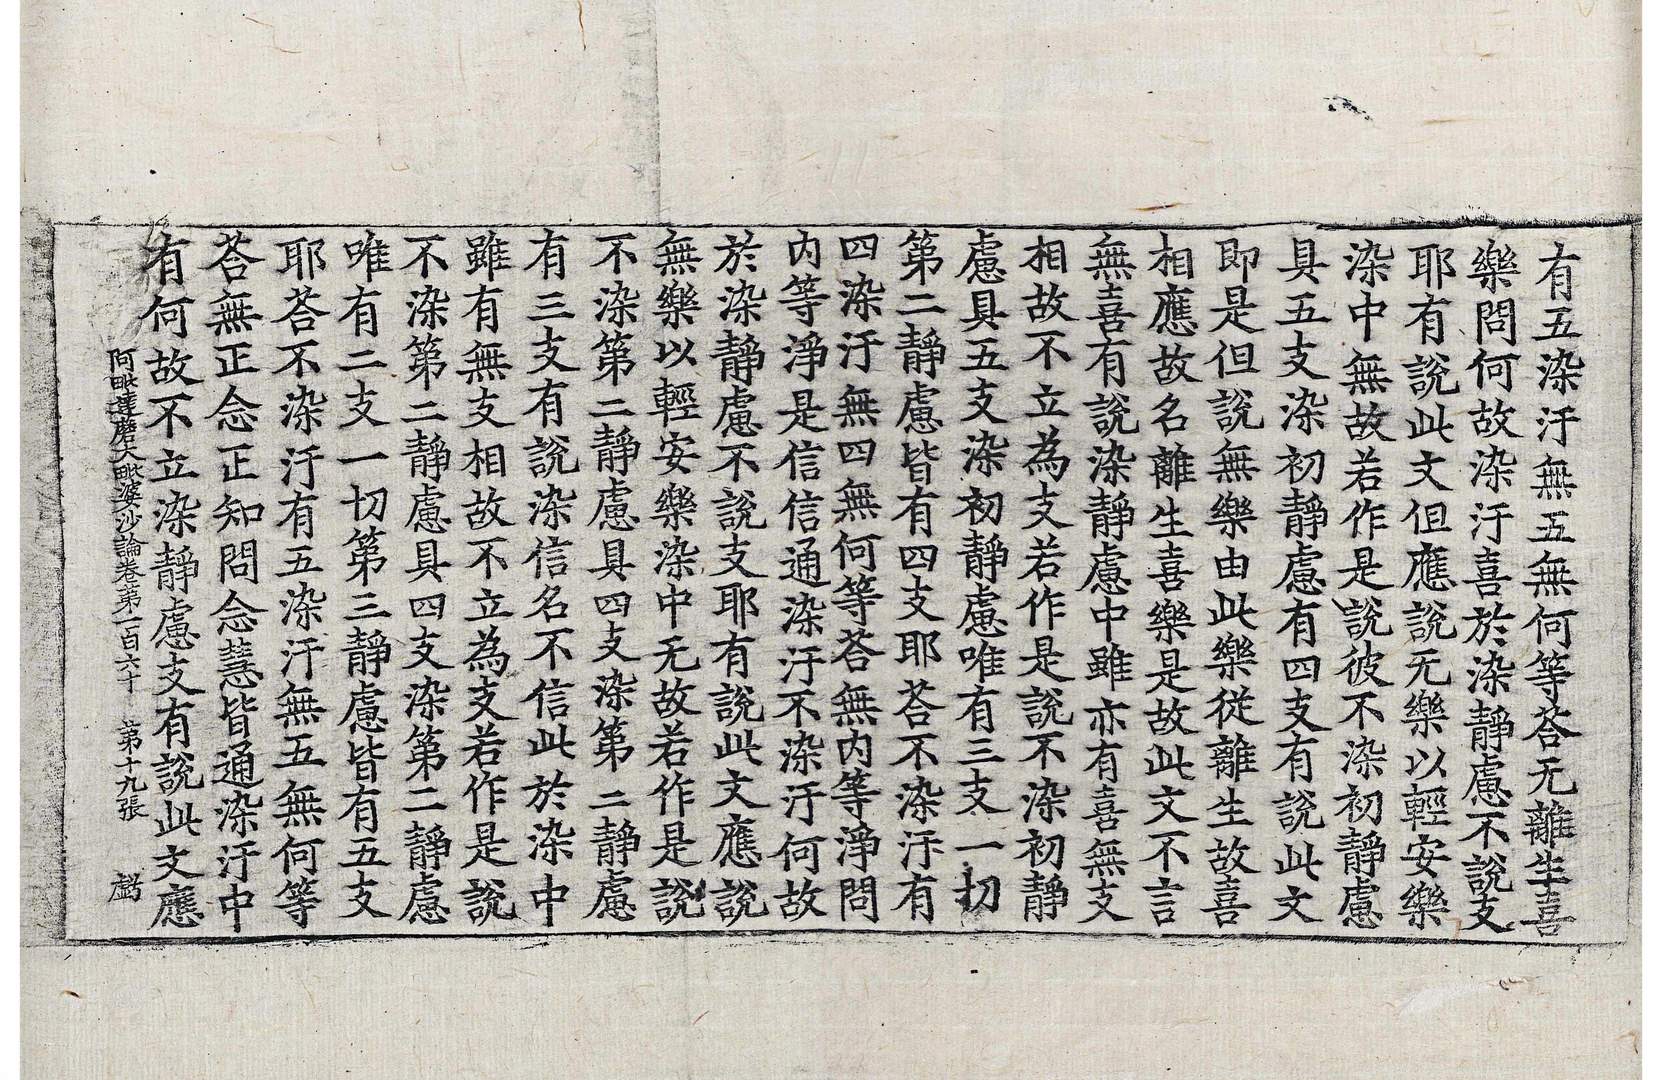 有五染汙無五無何等荅无離生喜
樂問何故染汙喜於染靜慮不說支
耶有說此文但應說无樂以輕安樂
染中無故若作是說彼不染初靜慮
具五支染初靜慮有四支有說此文
即是但說無樂由此樂從離生故喜
相應故名離生喜樂是故此文不言
無喜有說染靜慮中雖亦有喜無支
相故不立為支若作是說不染初靜
慮具五支染初靜慮唯有三支一切
第二靜慮皆有四支耶荅不染汙有
四染汙無四無何等荅無内等淨問
内等淨是信信通染汙不染汙何故
於染靜慮不說支耶有說此文應說
無樂以輕安樂染中无故若作是說
不染第二靜慮具四支染第二靜慮
有三支有說染信名不信此於染中
雖有無支相故不立為支若作是說
不染第二靜慮具四支染第二靜慮
唯有二支一切第三靜慮皆有五支
耶荅不染汙有五染汙無五無何等
荅無正念正知問念慧皆通染汙中
有何故不立染靜慮支有說此文應
阿毗達磨大毗婆沙論卷第一百六十 第十九張